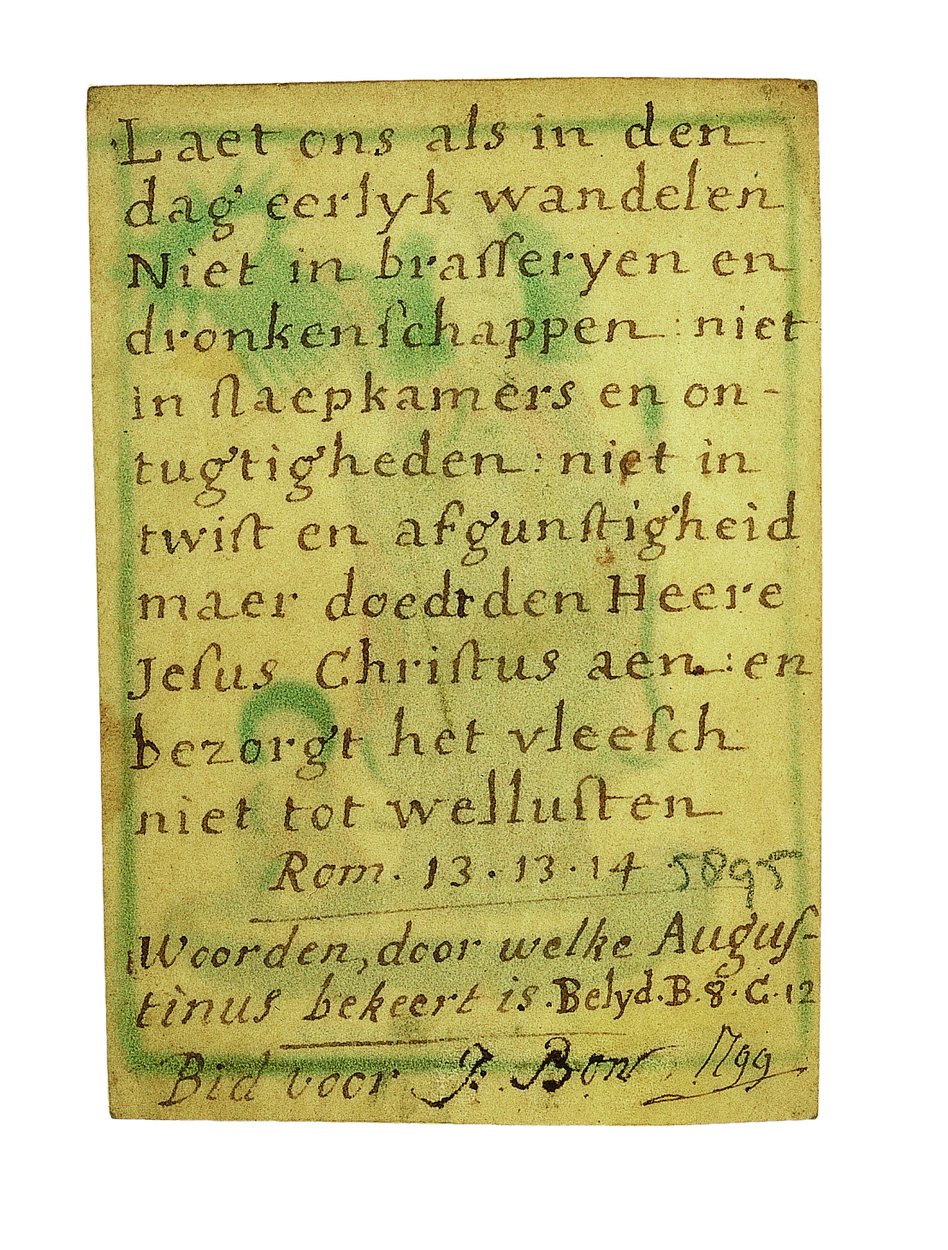 Laet ons als in den
dag eerlyk wandelen
Niet in brasseryen en
dronkenschappen : niet
in slaepkamers en on-
tugtigheden : niet in
twist en afgunstigheid
maer doedt den Heere
Jesus Christus aen : en
bezorgt het vleesch
niet tot wellusten
Rom. 13. 13. 14 5895
Woorden, door welke Augus-
tinus bekeert is. Belyd. B. 8. C. 12
Bid voor J: Bon 1799